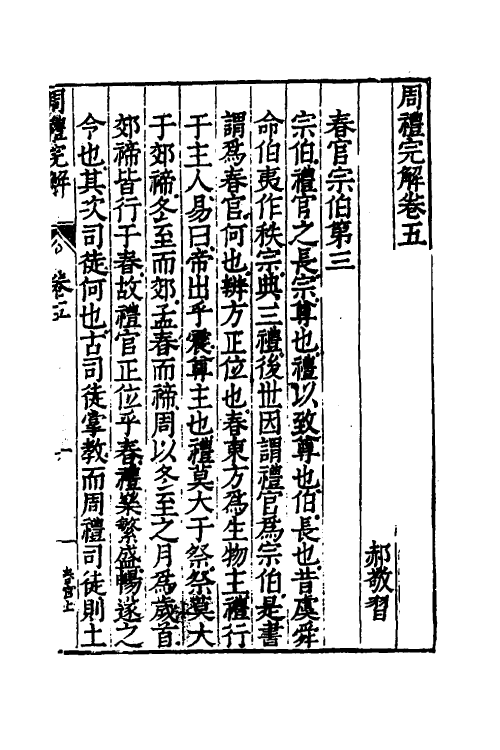 周禮完解卷五
郝敬習
春官宗伯第三
宗伯禮官之長宗尊也禮以致尊也伯長也昔虞舜
命伯夷作秩宗典三禮後世因謂禮官為宗伯是書
謂為春官何也辨方正位也春東方為生物主禮行
于主人易曰帝出乎震尊主也禮莫大于祭祭莫大
于郊禘冬至而郊孟春而禘周以冬至之月為歲首
郊禘皆行于春故禮官正位乎春禮樂繁盛暢遂之
令也其次司徒何也古司徒掌教而周禮司徒則土
周禮完解
卷五
一
春官上